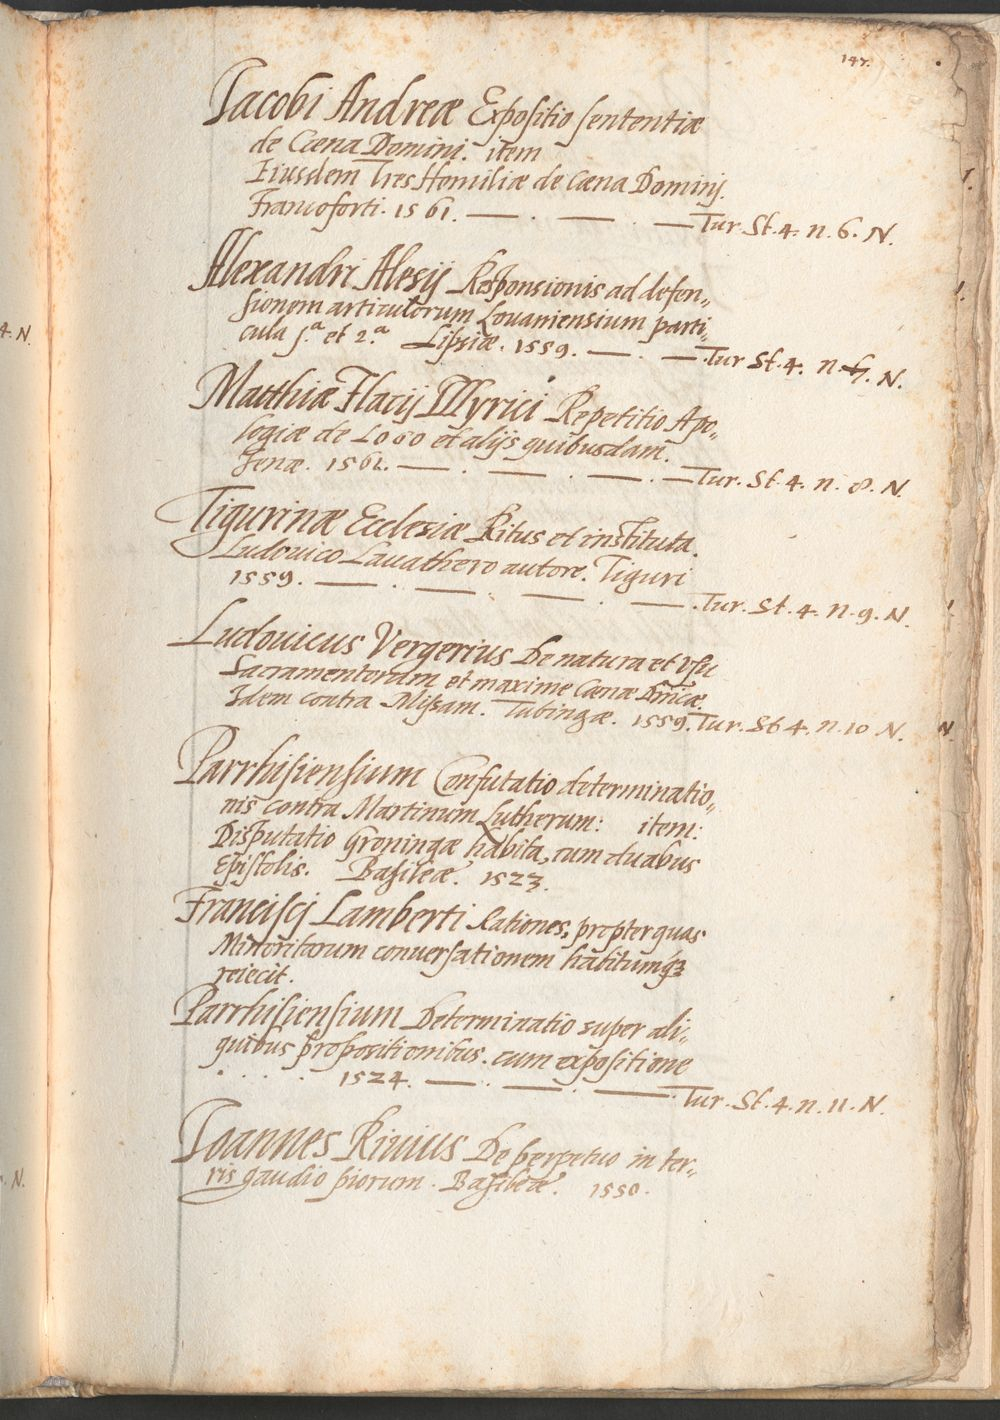 147.
Jacobi Andreæ Expositio sententiæ
de Cœna Domini. item
Eiusdem Tres Homiliæ de Cæna Dominj.
Francoforti. 1561. — . — . — Tur. St. 4. n. 6. N.
Alexandri Alesij Responsionis ad defen„
sionem articulorum Lovaniensium parti„
cula 1.ª et 2.ª Lipsiæ. 1559. — . — Tur St. 4. n. 7. N.
Matthiæ Flacij Illyrici Repetitio Apo„
logiæ de Logo et alijs quibusdam.
Jenæ. 1561. — . — . — . — Tur. St. 4. n. 8. N.
Tigurinæ Ecclesiæ Ritus et instituta.
Ludouico Lauathero autore. Tiguri
1559. — . — . — . — . Tur. St. 4. n. 9. N.
Ludouicus Vergerius De natura et vsu
Sacramentorum et maxime Cœnæ Dnicæ.
Idem contra Missam. Tubingæ. 1559. Tur. St 4. n. 10 N.
Parrhisiensium Confutatio determinatio„
nis contra Martinum Lutherum: item:
Disputatio Groningæ habita, cum duabus
Epistolis. Basileæ. 1523.
Francisci Lamberti Rationes, propter quas
Minoritarum conversationem habitumqȝ
reiecit.
Parrhisiensium Determinatio super ali„
quibus propositionibus. cum expositione
. . . . . 1524. — . — . — . Tur. St. 4. n. 11. N.
Ioannes Riuius De perpetuo in ter„
ris gaudio piorum. Basileæ. 1550.
4. N.
. N.
N.